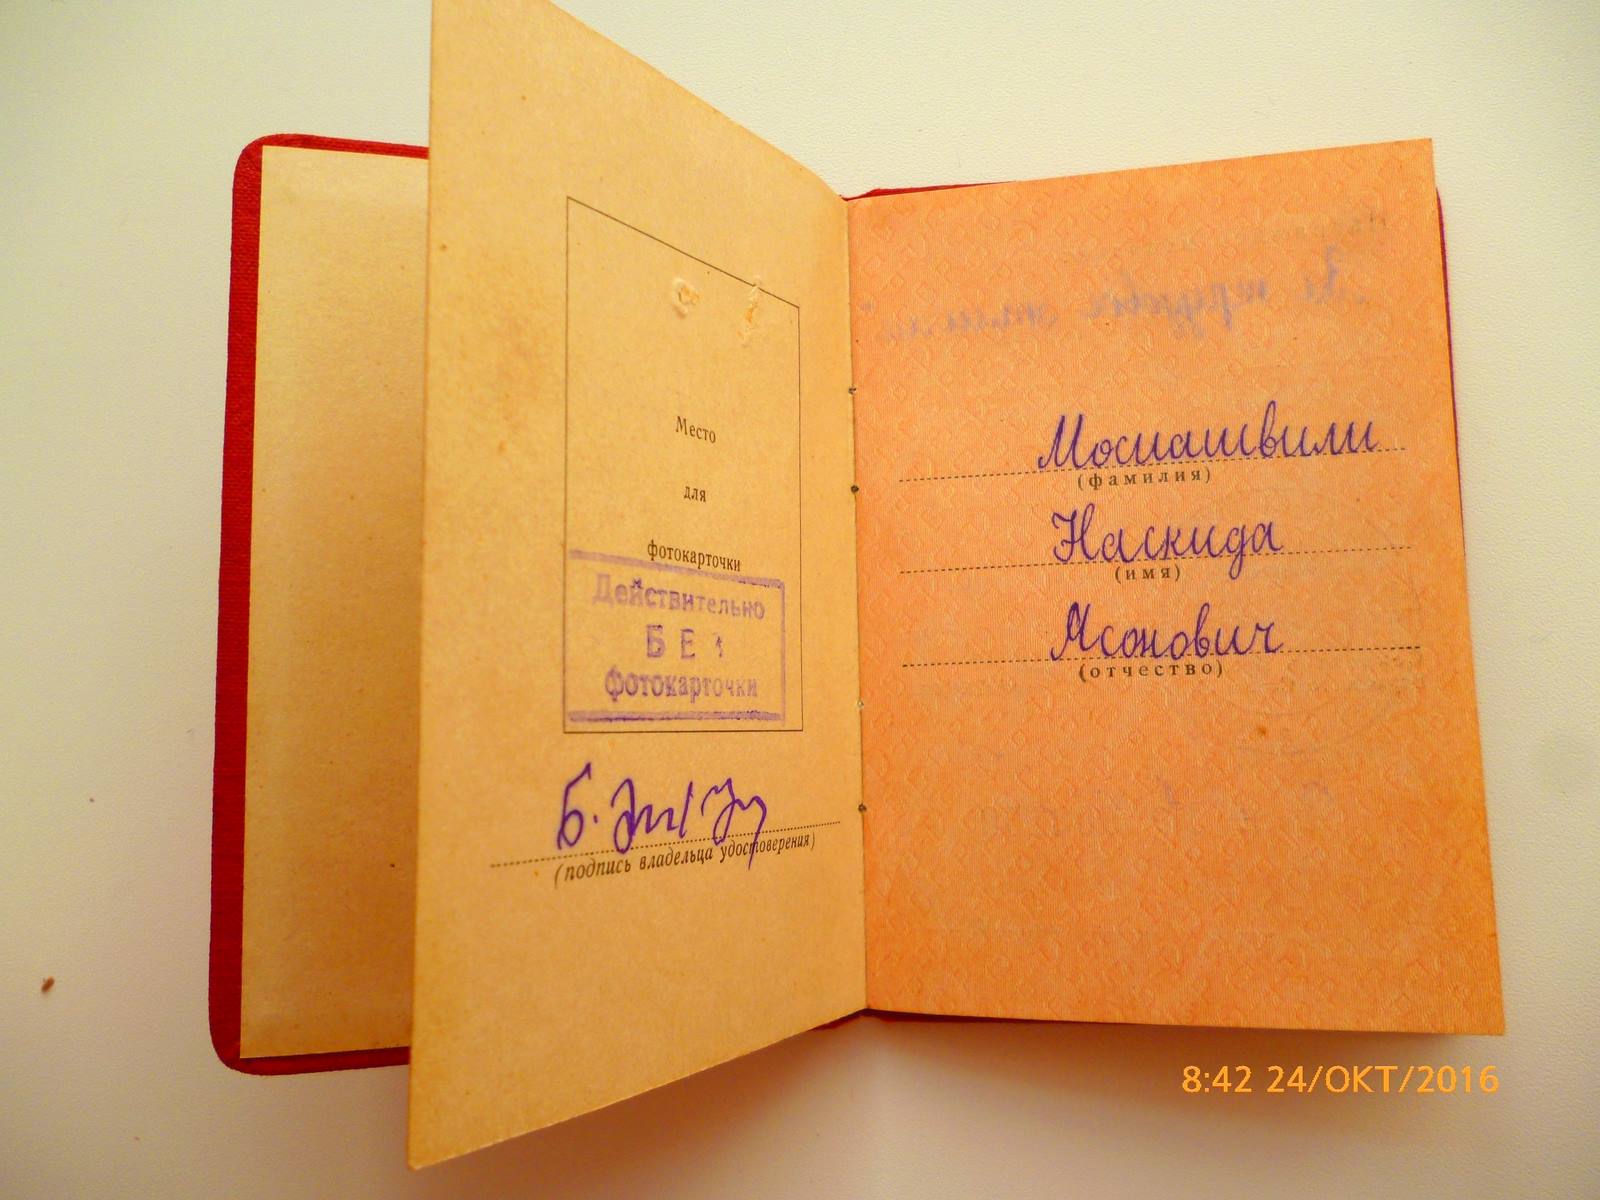 Место
для
фотокарточки
Действительно
БЕ
фотокарточки
(подпись владельца удостоверения)
Мосиашвили
(фамилия)
Наскида
(имя)
Ясонович
(отчество)
8:42 24/ОКТ/2016